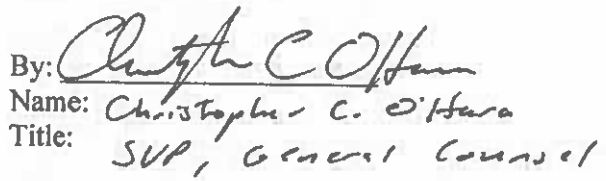 By: Christopher C O'Hara
Name: Christopher C. O'Hara
Title:
SVP, General Counsel